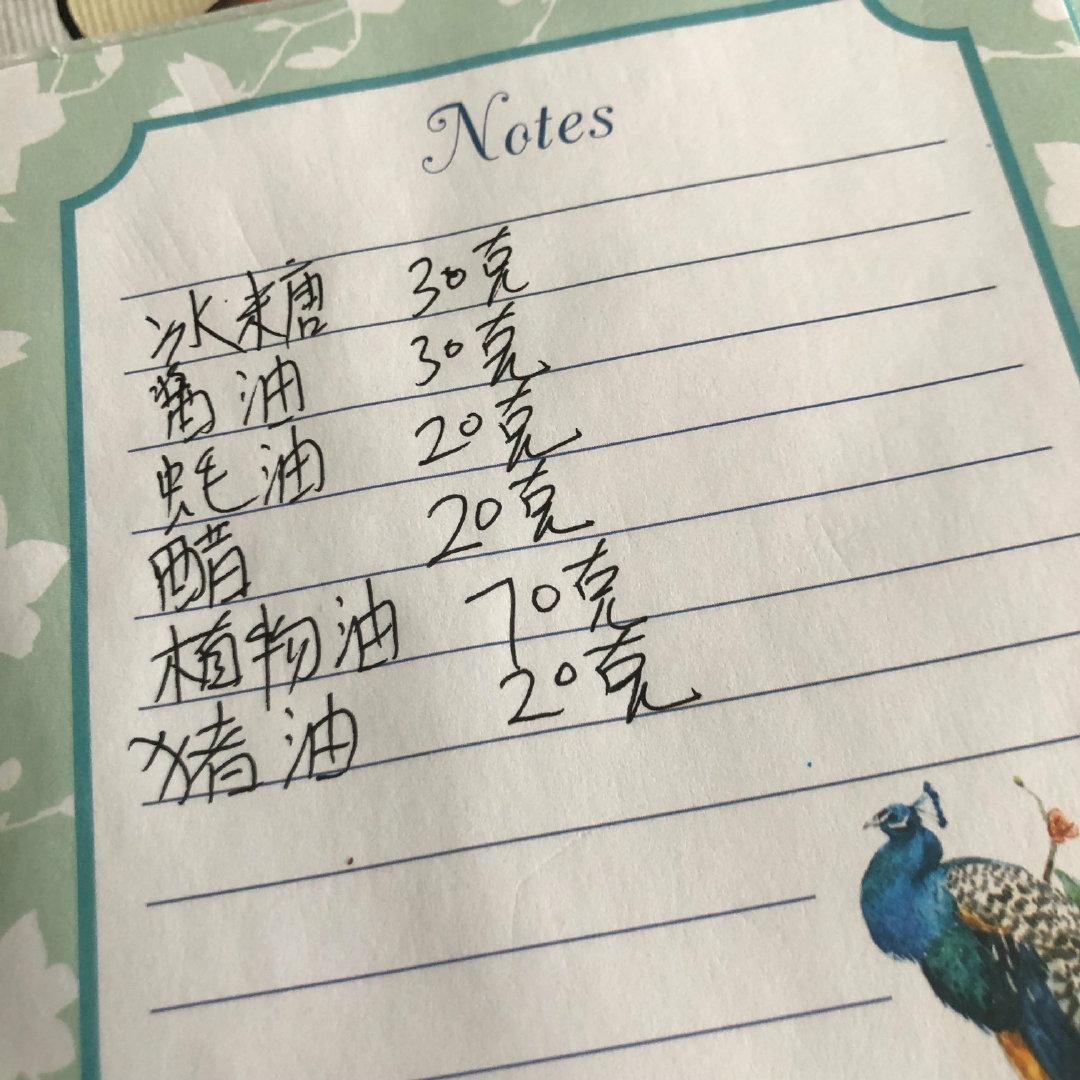 Notes
冰糖 30克
酱油 30克
蚝油 20克
醋 20克
植物油 70克
猪油 20克